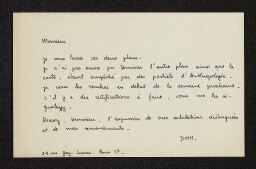 Monsieur,
je vous laisse ces deux plans.
je n'ai pas encore pu terminer l'autre plan ainsi que la
carte, étant empêché par des partiels d'Anthropologie.
je vous les rendrai en début de la semaine prochaine.
S'il y a des rectifications à faire, vous me les si-
gnalerez.
Recevez, Monsieur, l'expression de mes salutations distinguées
et de mes remerciements.
DMH.
24 rue Paris